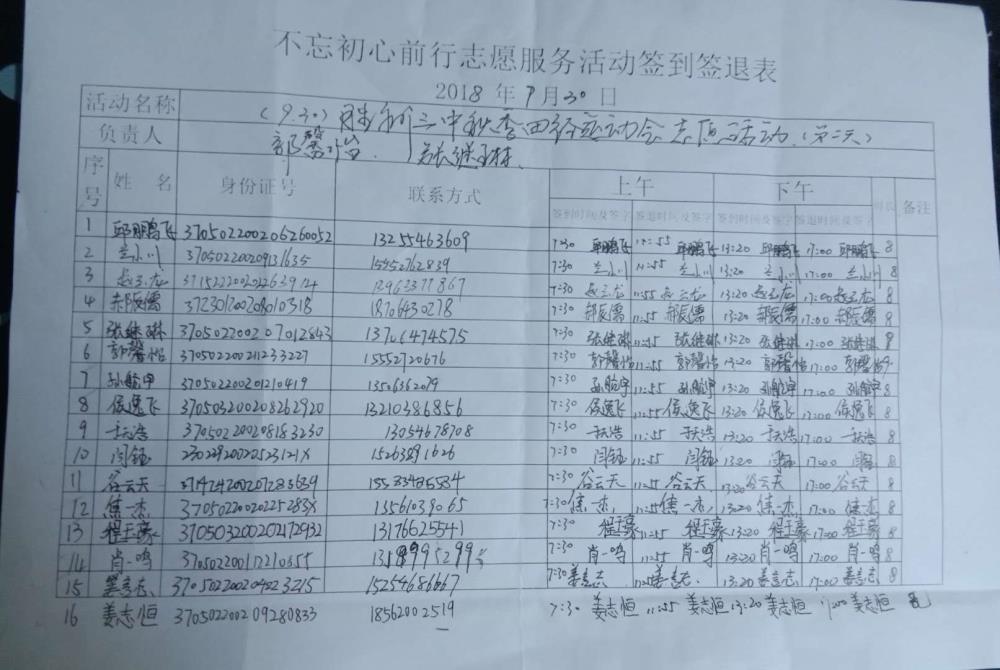 不忘初心前行志愿服务活动签到签退表
2018 年 9月30 日
活动名称 (9.30) 三中秋季田径运动会志愿活动 (第二天)
负责人 郭馨怡
序号 姓 名 身份证号 联系方式 上午 下午 备注
签到时间及签字 签退时间及签字 签到时间及签字 签退时间及签字
1 邱鹏飞 370502200206260052 13255463609 7:30 邱鹏飞 11:55 邱鹏飞 13:20 邱鹏飞 17:00 邱鹏飞 8
2 兰小川 370502200209131635 7:30 兰小川 11:55 兰小川 13:20 兰小川 17:00 兰小川 8
3 赵云龙 7:30 赵云龙 11:55 赵云龙 13:20 赵云龙 17:00 赵云龙 8
4 372301200208010318 18706430278 7:30 11:55 13:20 17:00 8
5 张继琳 370502200207012843 13706474575 7:30 张继琳 11:55 张继琳 13:20 张继琳 17:00 张继琳 8
6 郭馨怡 370502200211233227 15552720676 7:30 郭馨怡 11:55 郭馨怡 13:20 郭馨怡 17:00 郭馨怡
7 孙航宇 370502200201210419 13506362079 7:30 孙航宇 11:55 孙航宇 13:20 孙航宇 17:00 孙航宇 8
8 侯逸飞 370503200208262920 13210386856 7:30 侯逸飞 11:55 侯逸飞 13:20 侯逸飞 17:00 侯逸飞 8
9 于天浩 370502200208183230 13054678708 7:30 于天浩 11:55 于天浩 13:20 于天浩 17:00 于天浩 8
10 闫钰 15263891626 7:30 闫钰 11:55 闫钰 13:20 闫钰 17:00 闫钰 8
11 谷云天 7:30 谷云天 11:55 谷云天 13:20 谷云天 17:00 谷云天 8
12 焦一杰 37050220020225283X 13561039065 7:30 焦一杰 11:55 焦一杰 13:20 焦一杰 17:00 焦一杰 8
13 程玉豪 370503200202172932 13176625541 7:30 程玉豪 11:55 程玉豪 13:20 程玉豪 17:00 程玉豪 8
14 肖一鸣 7:30 肖一鸣 11:55 肖一鸣 13:20 肖一鸣 17:00 肖一鸣 8
15 姜志 15254686667 7:30 姜志 11:55 姜志 13:20 姜志 17:00 姜志 8
16 姜志恒 370502200209280833 18562002519 7:30 姜志恒 11:55 姜志恒 13:20 姜志恒 17:00 姜志恒